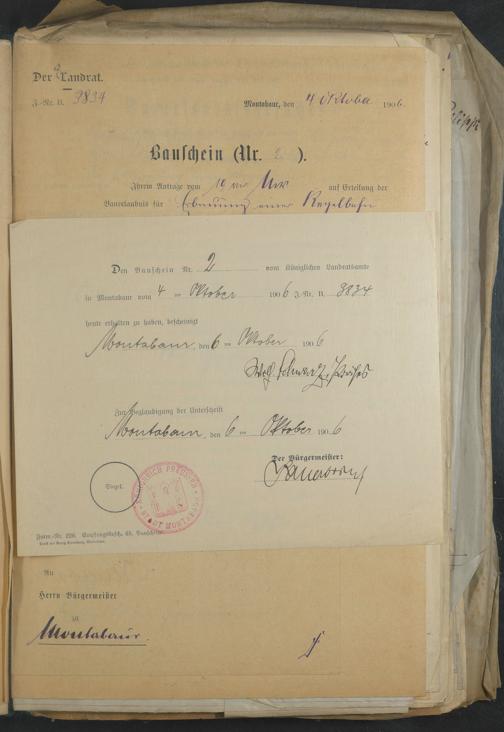 Der Landrat.
J.-Nr. II. 9834
Montabaur, den 4 Oktober 1906.
Bauschein (Nr. 2 ).
Ihrem Antrage vom auf Erteilung der
Bauerlaubnis für Erbauung einer Kegelbahn
Den Bauschein Nr. 2 vom Königlichen Landratsamte
in Montabaur vom 4 ten Oktober 1906 J.-Nr. II. 9834
heute erhalten zu haben, bescheinigt
Montabaur, den 6 ten Oktober 1906
Zur Beglaubigung der Unterschrift
Montabaur, den 6 ten Oktober 1906
Der Bürgermeister:
Siegel.
STADT MONTABAUR
An
Herrn Bürgermeister
in
Montabaur.